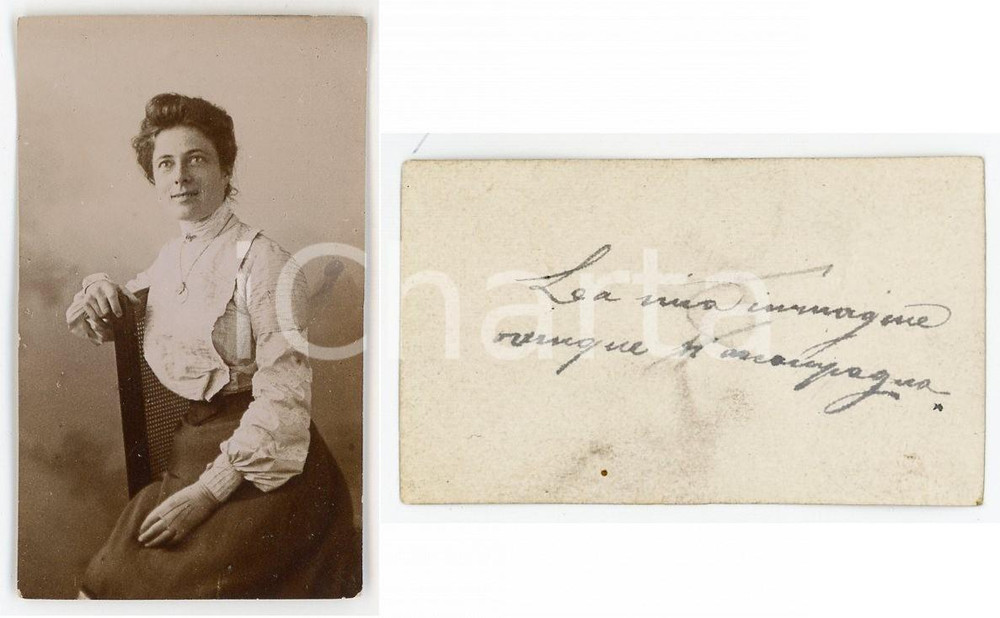 Charta
La mia immagine
ovunque ti accompagna.